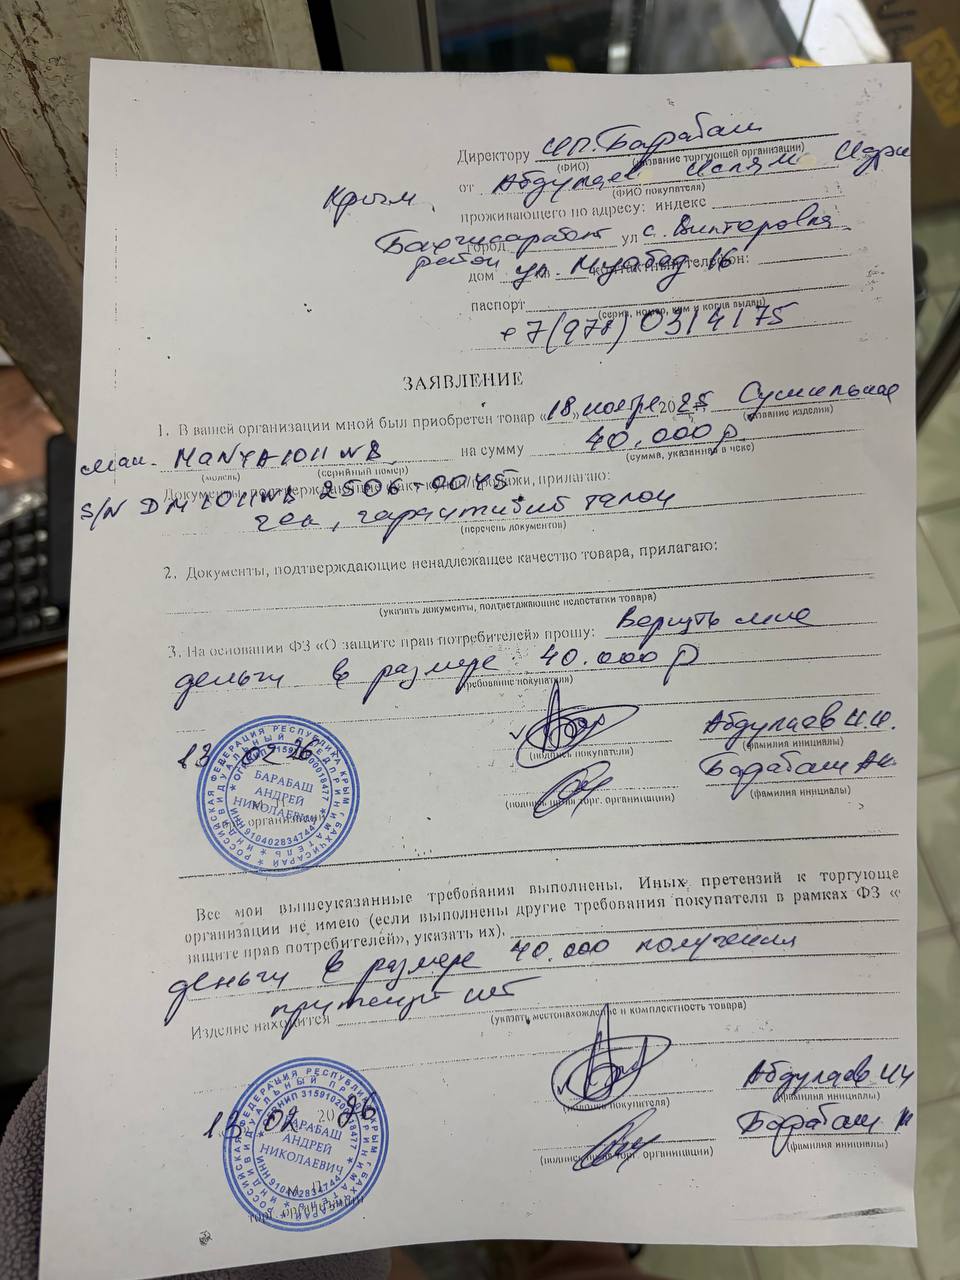 Директору ИП. Барабаш
(ФИО) (название торгующей организации)
от Абдулаев Ислям Идри
(ФИО покупателя)
Крым.
проживающего по адресу: индекс
Бахчисарайск город ул с. Викторовка
район дом ул. контактный телефон: 16
паспорт
(серия, номер, кем и когда выдан)
+7(978) 0314175
ЗАЯВЛЕНИЕ
1. В вашей организации мной был приобретен товар «18» ноября 2025 Сушильная
(название изделия)
маш. на сумму 40.000 р
(модель) (серийный номер) (сумма, указанная в чеке)
Документы, подтверждающие факт купли/продажи, прилагаю:
S/N DM10IIW8 2506-0045
чек, гарантийный талон
(перечень документов)
2. Документы, подтверждающие ненадлежащее качество товара, прилагаю:
(указать документы, подтверждающие недостатки товара)
3. На основании ФЗ «О защите прав потребителей» прошу: Вернуть мне
деньги в размере 40.000 р
(требование покупателя)
Абдулаев И.И.
(подпись покупателя) (фамилия инициалы)
Барабаш Ан.
(подпись торг. организации) (фамилия инициалы)
13
РОССИЙСКАЯ ФЕДЕРАЦИЯ РЕСПУБЛИКА КРЫМ Г.БАХЧИСАРАЙ
ИНДИВИДУАЛЬНЫЙ ПРЕДПРИНИМАТЕЛЬ
БАРАБАШ
АНДРЕЙ
НИКОЛАЕВИЧ
М. П.
торг. организации
Все мои вышеуказанные требования выполнены. Иных претензий к торгующе
организации не имею (если выполнены другие требования покупателя в рамках ФЗ «
защите прав потребителей», указать их).
деньги в размере 40.000 получения
притензий нет
Изделие находится
(указать местонахождение и комплектность товара)
Абдулаев ИИ
(подпись покупателя) (фамилия инициалы)
Барабаш
(подпись торг. организации) (фамилия инициалы)
13 02 2026
РОССИЙСКАЯ ФЕДЕРАЦИЯ РЕСПУБЛИКА КРЫМ Г.БАХЧИСАРАЙ
ИНДИВИДУАЛЬНЫЙ ПРЕДПРИНИМАТЕЛЬ
БАРАБАШ
АНДРЕЙ
НИКОЛАЕВИЧ
М. П.
торг. организации